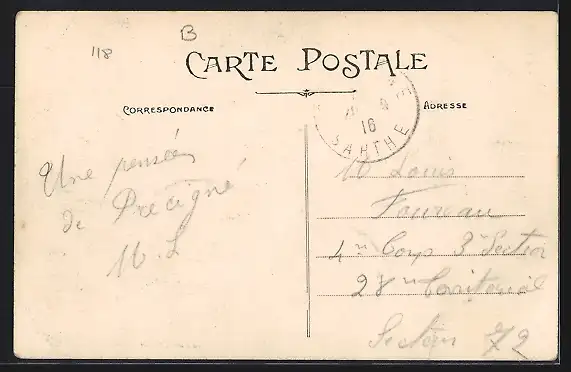 118
B
CARTE POSTALE
CORRESPONDANCE
ADRESSE
16
SARTHE
Une pensée
de Précigné
M. L
M Louis
Foureau
4e Corps 3e Section
28e Territorial
Secteur 72